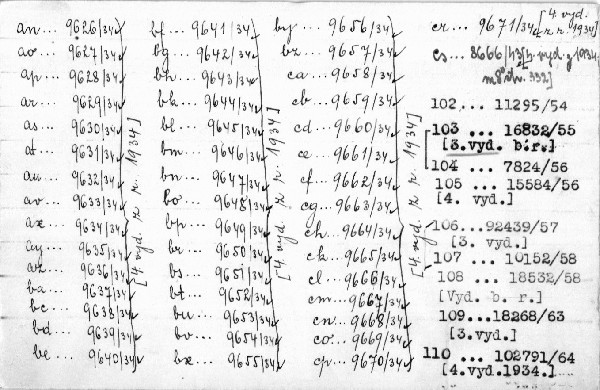 an... 9626/34
ao... 9627/34
ap... 9628/34
ar... 9629/34
as... 9630/34
at... 9631/34
au... 9632/34
av... 9633/34
ax... 9634/34
ay... 9635/34
az... 9636/34
ba... 9637/34
bc... 9638/34
bd... 9639/34
be... 9640/34
[4. vyd. z r. 1934]
bf... 9641/34
bg... 9642/34
bh... 9643/34
bk... 9644/34
bl... 9645/34
bm... 9646/34
bn... 9647/34
bo... 9648/34
bp... 9649/34
br... 9650/34
bs... 9651/34
bt... 9652/34
bu... 9653/34
bv... 9654/34
bx... 9655/34
[4. vyd. z r. 1934]
by... 9656/34
bz... 9657/34
ca... 9658/34
cb... 9659/34
cd... 9660/34
ce... 9661/34
cf... 9662/34
cg... 9663/34
ch... 9664/34
ck... 9665/34
cl... 9666/34
cm... 9667/34
cn... 9668/34
co... 9669/34
cp... 9670/34
[4. vyd. z r. 1934]
cr... 9671/34 [4. vyd. z r. 1934]
cs... 8666/43 [4. vyd. z 1934
332]
102... 11295/54
103 ... 16832/55
[3.vyd. b.r.]
104 ... 7824/56
105 ... 15584/56
[4. vyd.]
106...92439/57
[3. vyd.]
107 ... 10152/58
108 ... 18532/58
[Vyd. b. r.]
109...18268/63
[3.vyd.]
110 ... 102791/64
[4.vyd.1934.]